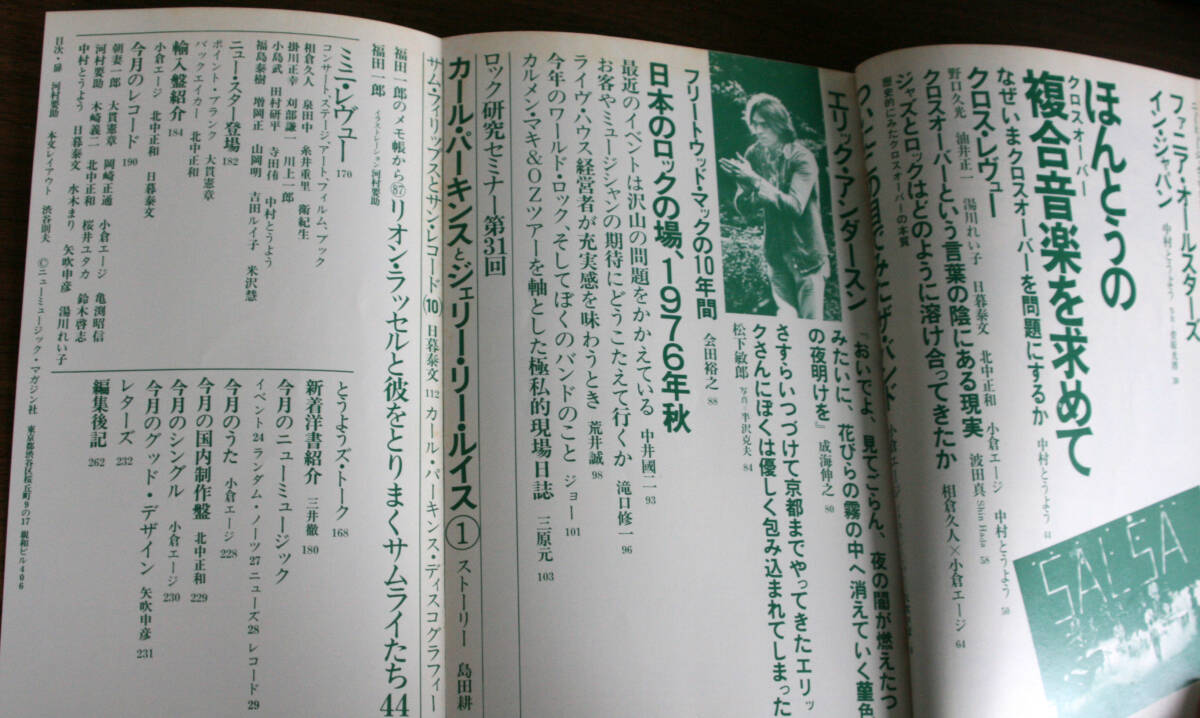 ファニア・オールスターズ
イン・ジャパン
中村とうよう
ほんとうの
複合音楽を求めて
クロスオーバー
なぜいまクロスオーバーを問題にするか 中村とうよう 44
クロス・レヴュー
野口久光 油井正一 湯川れい子 日暮泰文 北中正和 小倉エージ 中村とうよう 50
クロスオーバーという言葉の陰にある現実 波田真 Shin Hada 58
ジャズとロックはどのように溶け合ってきたか 相倉久人×小倉エージ 64
歴史的にみたクロスオーバーの本質
SALSA
ついにこの目でみたザ・バンド 小倉エージ
エリック・アンダースン
『おいでよ、見てごらん、夜の闇が燃えたつ
みたいに、花びらの霧の中へ消えていく菫色
の夜明けを』 成海伸之 80
さすらいつづけて京都までやってきたエリッ
クさんにぼくは優しく包み込まれてしまった
松下敏郎 写真・半沢克夫 84
フリートウッド・マックの10年間 会田裕之 88
日本のロックの場、1976年秋
最近のイベントは沢山の問題をかかえている 中井國二 93
お客やミュージシャンの期待にどうこたえて行くか 滝口修一 96
ライヴ・ハウス経営者が充実感を味わうとき 荒井誠 98
今年のワールド・ロック、そしてぼくのバンドのこと ジョー 101
カルメン・マキ&OZツアーを軸とした極私的現場日誌 三原元 103
ロック研究セミナー第31回
カール・パーキンスとジェリー・リー・ルイス① ストーリー 島田耕
サム・フィリップスとサン・レコード(10) 日暮泰文 112 カール・パーキンス・ディスコグラフィー
福田一郎のメモ帳から(87)リオン・ラッセルと彼をとりまくサムライたち 44
福田一郎 イラストレーション・河村要助
ミニ・レヴュー 170
コンサート、ステージ、アート、フィルム、ブック
相倉久人 泉田中 糸井重里 衛紀生
掛川正幸 刈部謙一 川上一郎
小島武 田村研平 寺田侑 中村とうよう
福島泰樹 増岡正 山岡明 吉田ルイ子 米沢慧
ニュー・スター登場 182
ポイント・ブランク 大貫憲章
バックエイカー 北中正和
輸入盤紹介 184
小倉エージ 北中正和 日暮泰文
今月のレコード 190
朝妻一郎 大貫憲章 岡崎正通 小倉エージ 亀渕昭信
河村要助 木崎義二 北中正和 桜井ユタカ 鈴木啓志
中村とうよう 日暮泰文 水木まり 矢吹申彦 湯川れい子
目次・扉 河村要助 本文レイアウト 渋谷則夫 ©ニューミュージック・マガジン社 東京都渋谷区桜丘町9の17 親和ビル406
とうようズ・トーク 168
新着洋書紹介 三井徹 180
今月のニューミュージック
イベント 24 ランダム・ノーツ 27 ニューズ 28 レコード 29
今月のうた 小倉エージ 228
今月の国内制作盤 北中正和 229
今月のシングル 小倉エージ 230
今月のグッド・デザイン 矢吹申彦 231
レターズ 232
編集後記 262